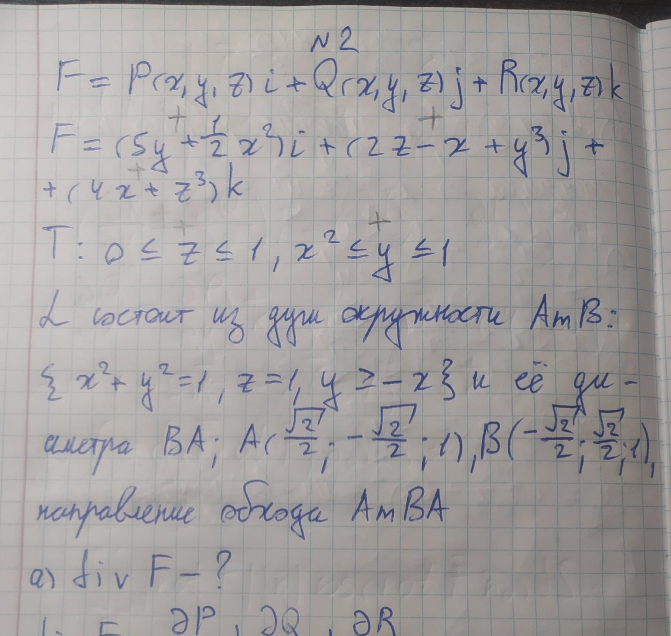 N2
F = P(x, y, z) i + Q(x, y, z) j + R(x, y, z) k
F = (5y + 1/2 x²) i + (2z - x + y³) j +
+ (4x + z³) k
T: 0 ≤ z ≤ 1, x² ≤ y ≤ 1
L состоит из дуги окружности AmB:
{ x² + y² = 1, z = 1, y ≥ -x } и её ди-
аметра BA; A(√2/2; -√2/2; 1), B(-√2/2; √2/2; 1),
направление обхода AmBA
а) div F - ?
div F = ∂P, ∂Q, ∂R